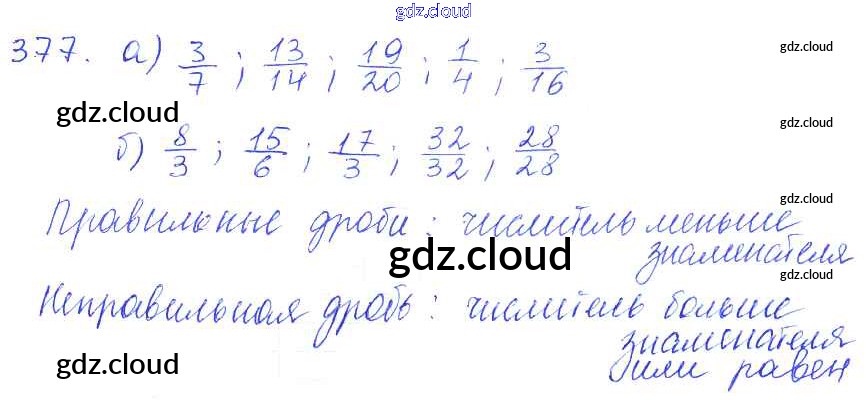 gdz.cloud
377. а) 3/7 ; 13/14 ; 19/20 ; 1/4 ; 3/16
gdz.cloud
gdz.cloud
gdz.cloud
б) 8/3 ; 15/6 ; 17/3 ; 32/32 ; 28/28
gdz.cloud
Правильные дроби : числитель меньше
знаменателя
gdz.cloud
gdz.cloud
Неправильная дробь : числитель больше
знаменателя
или равен
gdz.cloud
gdz.cloud